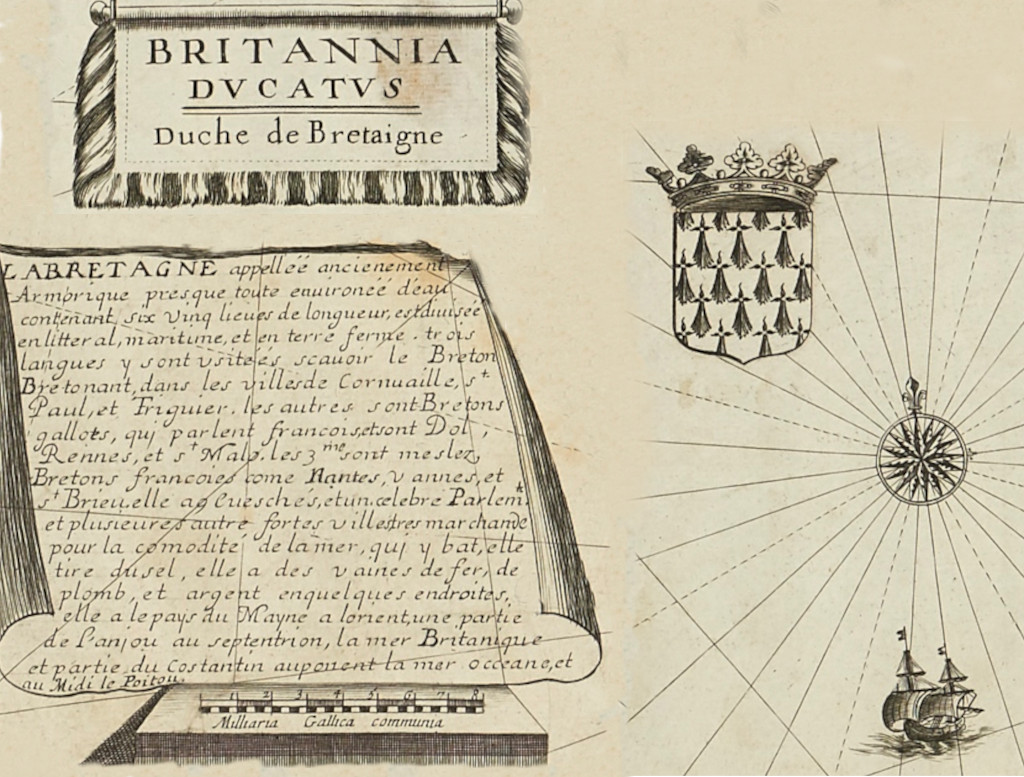 BRITANNIA
DVCATVS
Duche de Bretaigne
LABRETAGNE appelleé ancienement
Armorique presque toute enuironeé d'eau
contenant six vinq lieues de longueur, est diuiseé
en litteral, maritime, et en terre ferme. trois
langues y sont vsiteés scauoir le Breton
Bretonant, dans les villes de Cornuaille, st
Paul, et Friguier. les autres sont Bretons
gallots, quj parlent francois, et sont Dol,
Rennes, et st Malo. les 3me sont meslez,
Bretons francoies come Nantes, vannes, et
st Brieu. elle a 9 Euesches, et un celebre Parlemt
et plusieures autre fortes villes tres marchande
pour la comodité de la mer, quj y bat, elle
tire du sel, elle a des vaines de fer, de
plomb, et argent en quelques endroites,
elle a le pays du Mayne a lorient, une partie
de l'anjou au septentrion, la mer Britanique
et partie du Costantin au ponent la mer occeane, et
au Midi le Poitou.
1 2 3 4 5 6 7 8
Milliaria Gallica communia